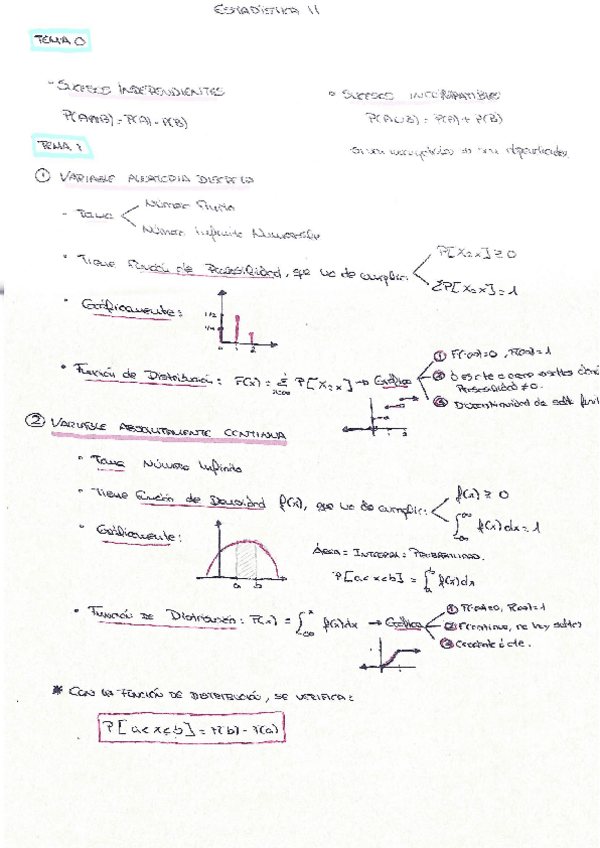 ESTADÍSTICA II
TEMA 0
- SUCESOS INDEPENDIENTES
P(A∩B) = P(A) · P(B)
• SUCESOS INCOMPATIBLES
P(A∪B) = P(A) + P(B)
TEMA 1
① VARIABLE ALEATORIA DISCRETA
- Toma
Número Finito
Número Infinito Numerable
• Tiene Función de Probabilidad, que ha de cumplir:
P[X=x] ≥ 0
ΣP[X=x] = 1
• Gráficamente:
1/2
1/4
0 1 2
• Función de Distribución: F(x) = Σ P[X=x] → Gráfica
① F(-∞)=0, F(∞)=1
② Probabilidad ≠ 0.
③ Discontinuidad de salto
② VARIABLE ABSOLUTAMENTE CONTINUA
• Toma Número Infinito
• Tiene Función de Densidad f(x), que ha de cumplir:
f(x) ≥ 0
∫ f(x)dx = 1
• Gráficamente:
a b
ÁREA = INTEGRAL = PROBABILIDAD.
P[a<x<b] = ∫ f(x)dx
• Función de Distribución: F(x) = ∫ f(x)dx → Gráfica
① F(-∞)=0, F(∞)=1
② F continua, no hay saltos
③ Creciente o cte.
* CON LA FUNCIÓN DE DISTRIBUCIÓN, SE VERIFICA:
P[a<x<b] = F(b) - F(a)